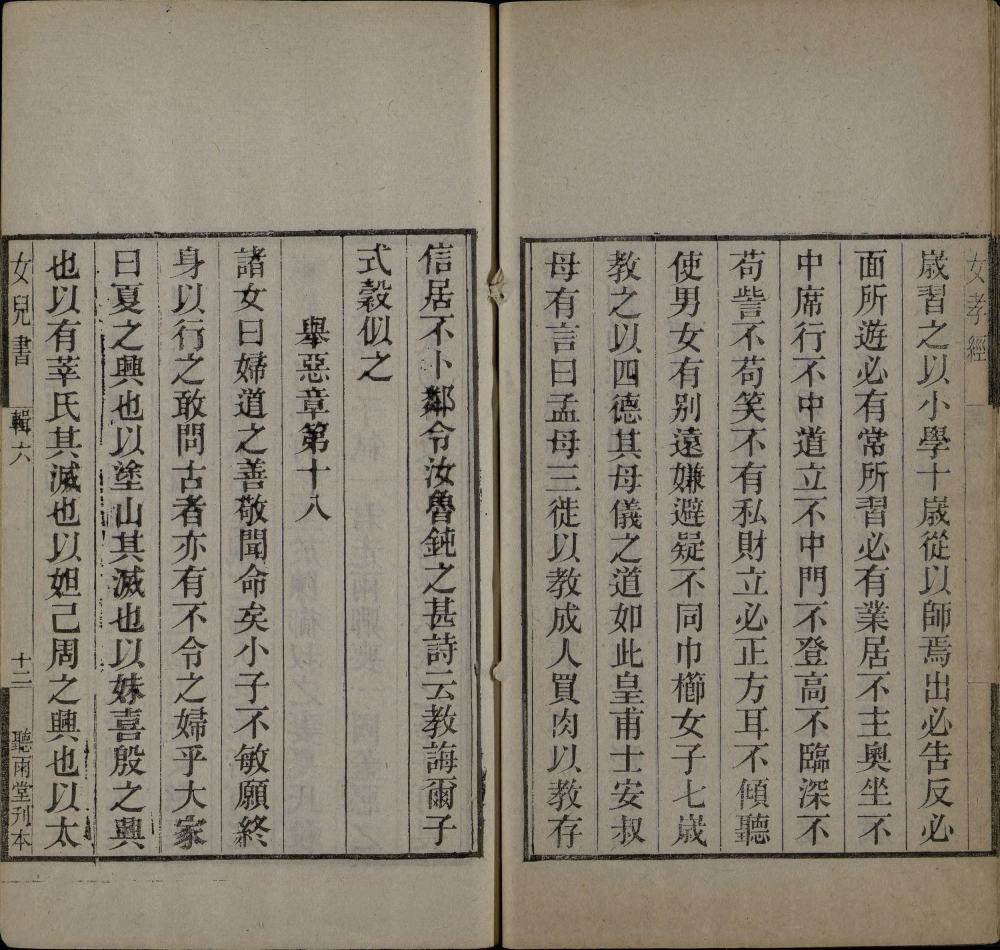 女孝經
歲習之以小學十歲從以師焉出必告反必
面所遊必有常所習必有業居不主奧坐不
中席行不中道立不中門不登高不臨深不
苟訾不苟笑不有私財立必正方耳不傾聽
使男女有别遠嫌避疑不同巾櫛女子七歲
教之以四德其母儀之道如此皇甫士安叔
母有言曰孟母三徙以教成人買肉以教存
信居不卜鄰令汝魯鈍之甚詩云教誨爾子
式穀似之
舉惡章第十八
諸女曰婦道之善敬聞命矣小子不敏願終
身以行之敢問古者亦有不令之婦乎大家
曰夏之興也以塗山其滅也以妹喜殷之興
也以有莘氏其滅也以妲己周之興也以太
女兒書 輯六 十二 聽雨堂刊本